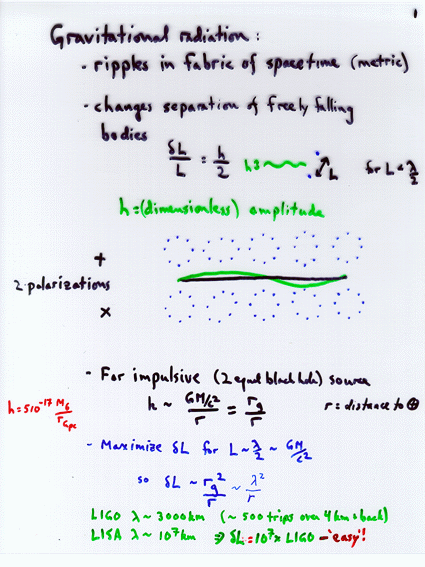 1
Gravitational radiation:
- ripples in fabric of spacetime (metric)
- changes separation of freely falling
bodies
δL/L = h/2 h3 L for L < λ/2
h = (dimensionless) amplitude
+
2 polarizations
x
- For impulsive (2 equal black hole) source
h ~ GM/c²/r = rg/r r = distance to ⊕
h = 5 10⁻¹⁷ M6/rGpc
- Maximize δL for L ~ λ/2 ~ GM/c²
so δL ~ rg²/r ~ λ²/r
LIGO λ ~ 3000 km (~ 500 trips over 4 km & back)
LISA λ ~ 10⁷ km ⇒ δL = 10⁷ x LIGO - 'easy'!